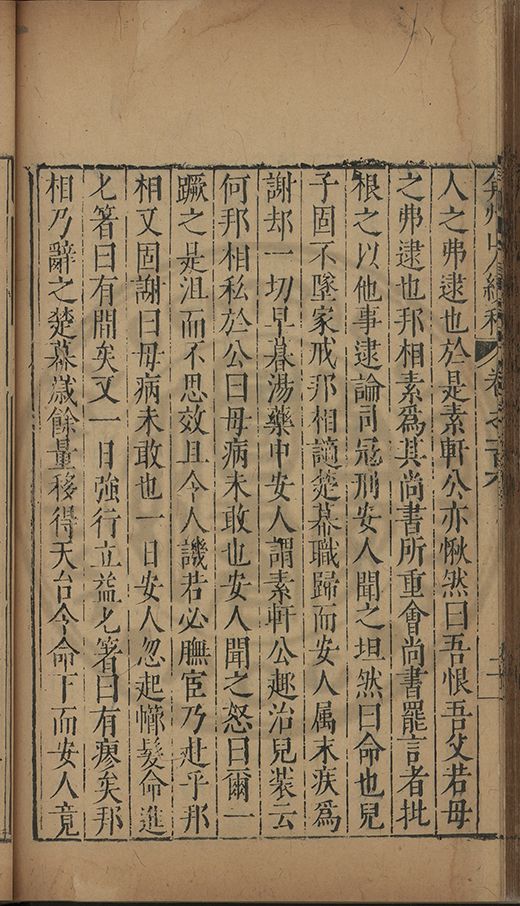 弇州山人續稿 卷之百
人之弗逮也於是素軒公亦愀然曰吾恨吾父若母
之弗逮也邦相素爲其尚書所重會尚書罷言者批
根之以他事逮論司冦刑安人聞之坦然曰命也兒
子固不墜家戒邦相謫楚幕職歸而安人属末疾爲
謝却一切早暮湯藥中安人謂素軒公趣治兒装云
何邦相私於公曰母病未敢也安人聞之怒曰爾一
蹶之是沮而不思效且令人譏若必膴宦乃赴乎邦
相又固謝曰母病未敢也一日安人忽起櫛髮命進
匕箸曰有間矣又一日強行立益匕箸曰有瘳矣邦
相乃辭之楚幕歳餘量移得天台令命下而安人竟